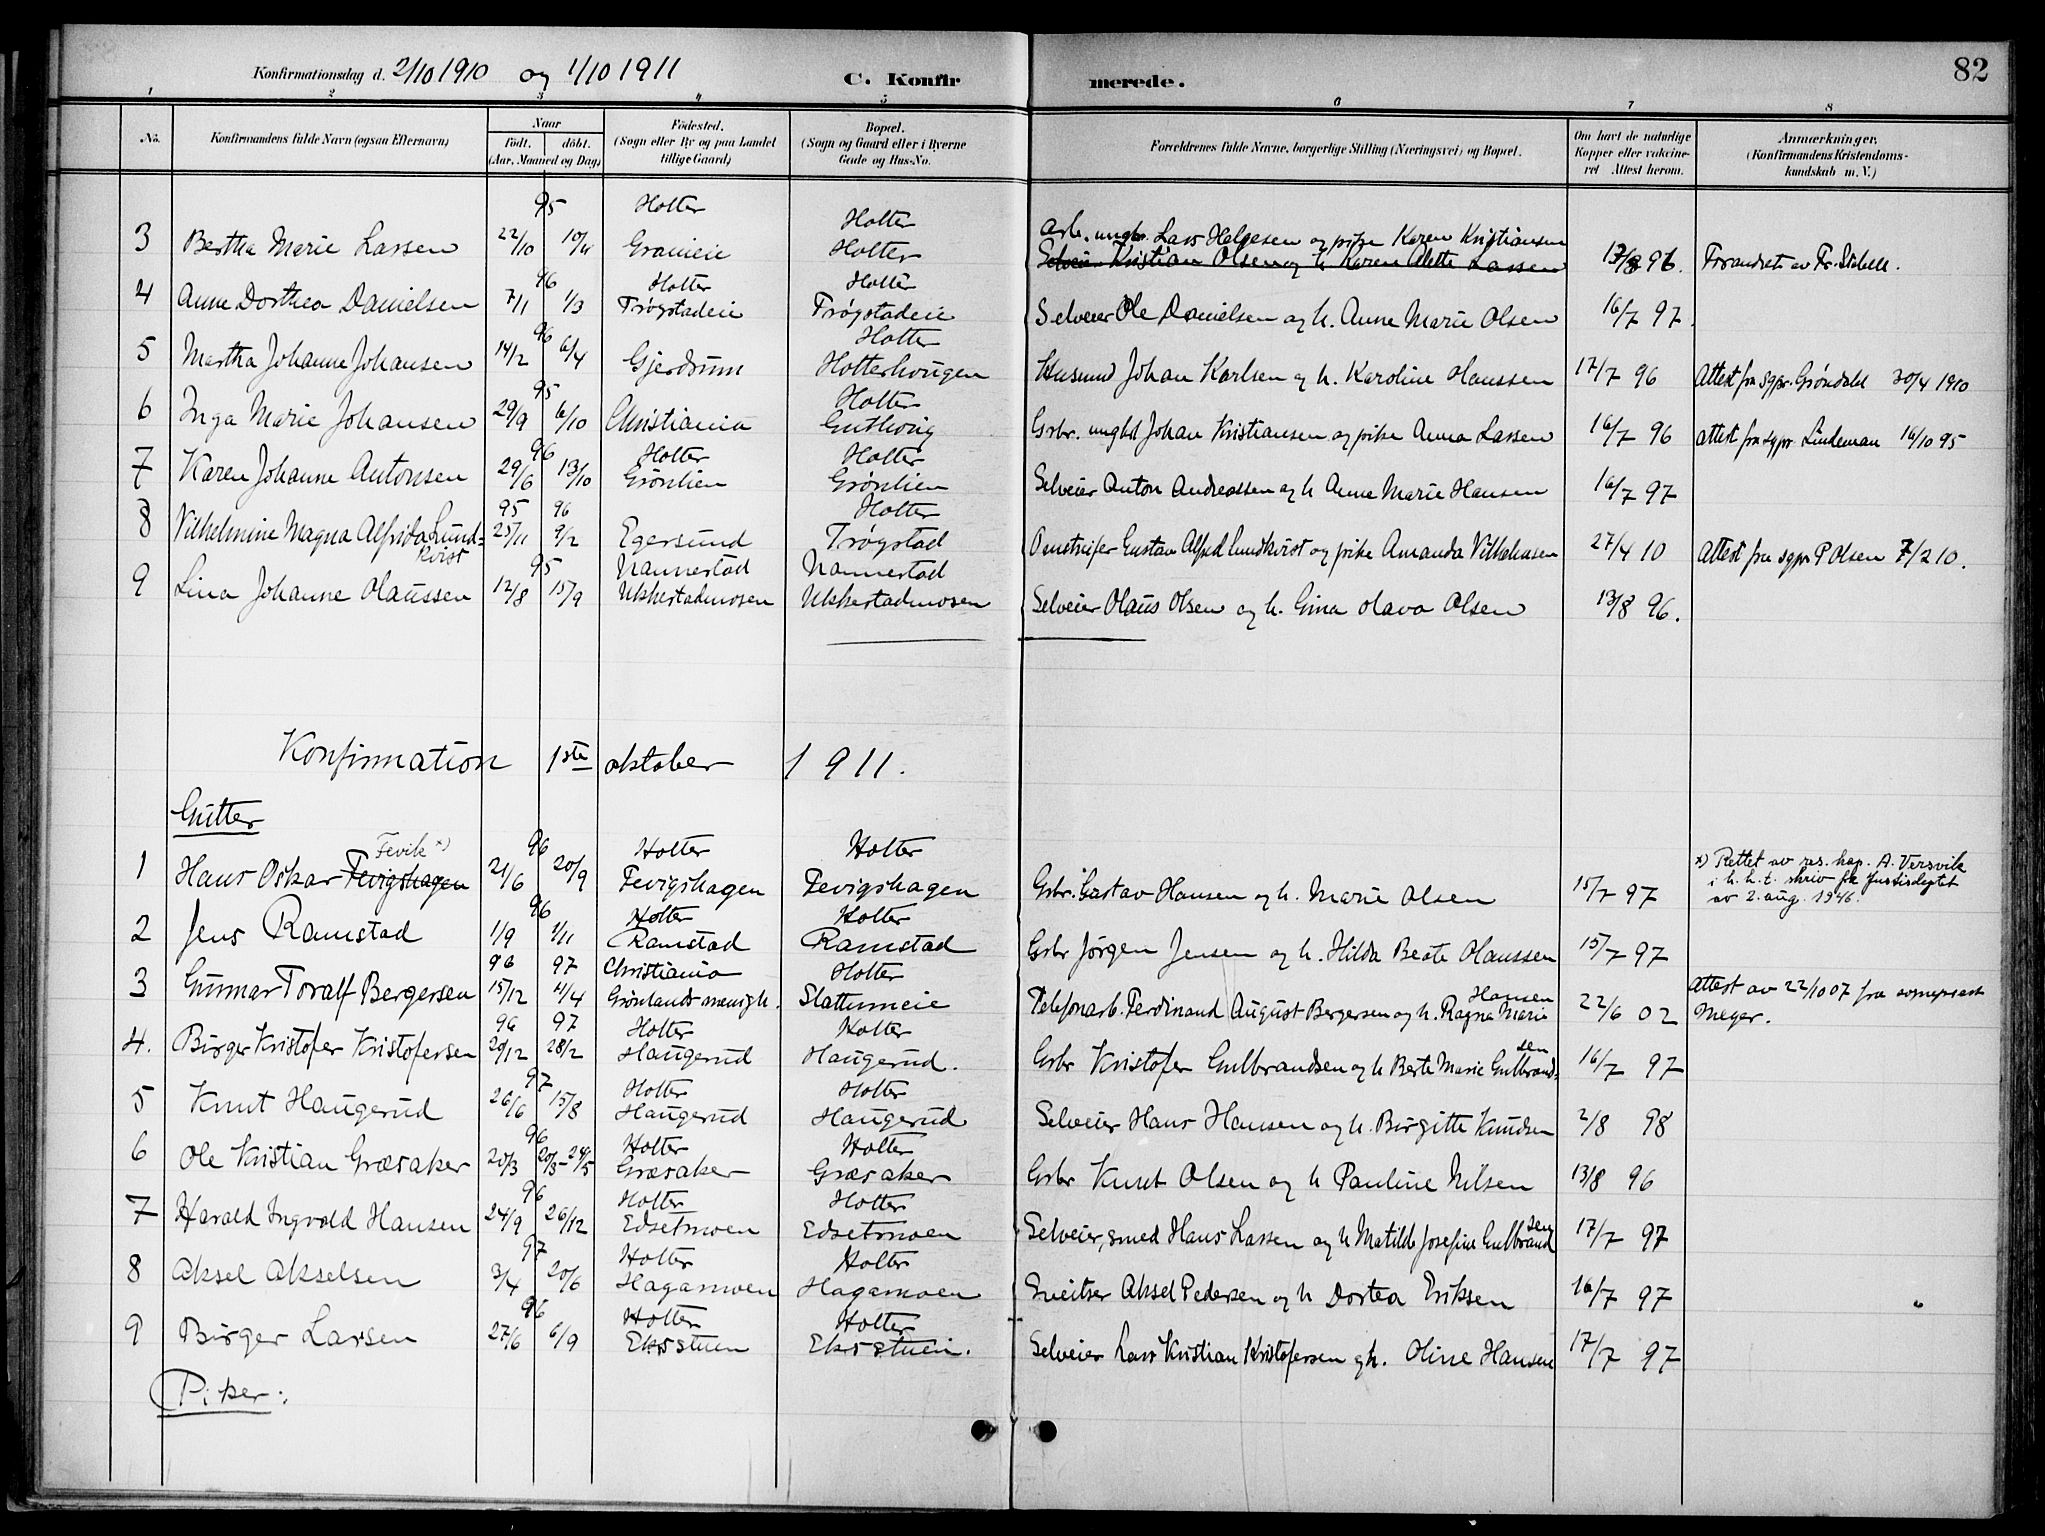 82
Konfirmationsdag d. 2/10 1910 og 1/10 1911 C. Konfirmerede.
1 2 3 4 5 6 7 8
No. Konfirmandens fulde Navn (ogsaa Efternavn) Naar født. døbt. (Aar, Maaned og Dag) Fødested. (Sogn eller By og paa Landet tillige Gaard) Bopæl. (Sogn og Gaard eller i Byerne Gade og Hus-No. Forældrenes fulde Navne, borgerlige Stilling (Næringsvei) og Bopæl. Om havt de naturlige Kopper eller vakcineret Attest herom. Anmærkninger. (Konfirmandens Kristendomskundskab m. V.)
95 Holter Holter
Arb. ungk. Lars Helgesen og pike Karen Kristiansen
3 Bertha Marie Larsen 22/10 10/11 Grameie Holter Selveier Kristian Olsen og h. Karen Alette Larsen 13/8 96. Forandret av Fr. Stabell.
96 Holter Holter
4 Anne Dorthea Danielsen 7/1 1/3 Trøgstadeie Trøgstadeie Selveier Ole Danielsen og h. Anne Marie Olsen 16/7 97.
96 Holter
5 Martha Johanne Johansen 14/2 6/4 Gjerdrum Holterhougen Husmd Johan Karlsen og h. Karoline Hanssen 17/7 96 Attest fra sgpr. Grøndahl 30/4 1910
95 Holter
6 Inga Marie Johansen 29/9 6/10 Christiania Guthoug Grbr. ungkl Johan Kristiansen og pike Anna Larsen 16/7 96 attest fra sgpr Lindeman 16/10 95
96 Holter Holter
7 Karen Johanne Antonsen 29/6 13/10 Grønlien Grønlien Selveier Anton Andreassen og h Anne Marie Hansen 16/7 97
95 96 Holter
8 Vilhelmine Magna Alfrida Lund= 25/11 9/2 Egersund Trøgstad Omstreifer Gustav Alfred Lundkvist og pike Amanda Vilhelmsen 27/4 10 Attest fra sgpr P Olsen 7/2 10.
kvist 95 Nannestad Nannestad
9 Lina Johanne Olaussen 12/8 15/9 Ukkestadmosen Ukkestadmosen Selveier Olaus Olsen og h. Gina Olava Olsen 13/8 96.
Konfirmation 1ste oktober 1911.
Gutter
Fevik x) 96 Holter Holter
1 Hans Oskar Fevigshagen 21/6 20/9 Fevigshagen Fevigshagen Grbr. Gustav Hansen og h. Marie Olsen 15/7 97
x) Rettet av res. kap. A. Versvik
i h. h. t. skriv fra Justisdeptet
av 2. aug. 1946.
96 Holter Holter
2 Jens Ramstad 1/9 1/11 Ramstad Ramstad Grbr Jørgen Jensen og h. Hilda Beate Olaussen 15/7 97
96 97 Christiania Holter
3 Gunnar Toralf Bergersen 15/12 11/4 Grønlands menigh. Slattumeie Telefonarb. Ferdinand August Bergersen og h. Ragna Marie Hansen 22/6 02 Attest av 22/10 07 fra sogneprest
Meyer.
96 97 Holter Holter
4. Birger Kristofer Kristofersen 20/12 28/2 Haugerud Haugerud. Grbr Kristofer Gulbrandsen og h Berte Marie Gulbrandsen 16/7 97
97 Holter Holter
5 Knut Haugerud 26/6 15/8 Haugerud Haugerud Selveier Hans Hansen og h. Birgitte Knudsen 2/8 98
96 Holter Holter
6 Ole Kristian Græsaker 20/3 20/3-24/5 Græsaker Græsaker Grbr Knut Olsen og h Pauline Nilsen 13/8 96
96 Holter Holter
7 Harald Ingvald Hansen 24/9 26/12 Edsetmoen Edsetmoen Selveier, smed Hans Larsen og h Matilde Josefine Gulbrandsen 17/7 97
97 Holter Holter
8 Aksel Akselsen 3/4 20/6 Hagamoen Hagamoen Sveitser Aksel Pedersen og h Dortea Eriksen 16/7 97
96 Holter Holter
9 Birger Larsen 27/6 6/9 Eksstuen Eksstuen. Selveier Lars Kristian Kristofersen og h. Oline Hansen 17/7 97
Piker: